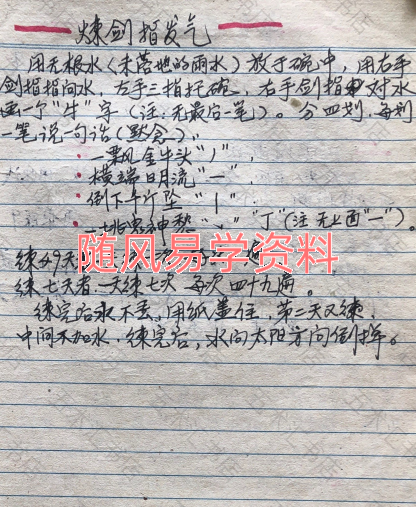 炼剑指发气
用无根水（未落地的雨水）放于碗中，用右手
剑指指向水，左手三指托碗，右手剑指对水
画一个"牛"字（注：无最后一笔）。分四划，每划
一笔说一句话（默念）。
金牛头"丿"，
横端日月流"一"，
倒下千斤坠"丨"，
"丁"（注 无上面"一"）。
练49天
随风易学资料
练七天者，一天练七次，每次四十九遍。
练完后水不丢，用纸盖住，第二天又练，
中间不加水，练完后，水向太阳方向倒掉。